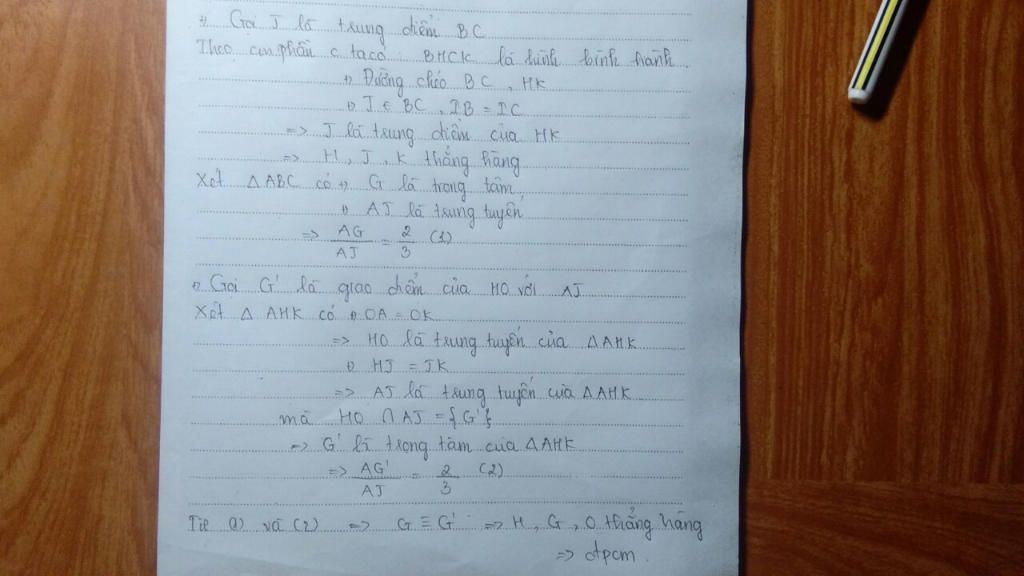 +) Gọi J là trung điểm BC
Theo cm phần c ta có: BHCK là hình bình hành.
+) Đường chéo BC, HK
+) J ∈ BC, IB = IC
=> J là trung điểm của HK
=> H, J, K thẳng hàng
Xét △ABC có +) G là trọng tâm
+) AJ là trung tuyến
=> AG/AJ = 2/3 (1)
+) Gọi G' là giao điểm của HO với AJ
Xét △AHK có +) OA = OK
=> HO là trung tuyến của △AHK
+) HJ = JK
=> AJ là trung tuyến của △AHK
mà HO ∩ AJ = {G'}
=> G' là trọng tâm của △AHK
=> AG'/AJ = 2/3 (2)
Từ (1) và (2) => G ≡ G' => H, G, O thẳng hàng
=> đpcm.